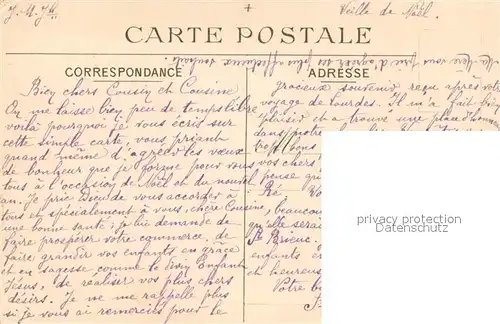 J. M. Jh.
Veille de Noël.
CARTE POSTALE
CORRESPONDANCE
ADRESSE
Bien chers Cousin et Cousine
On me laisse bien peu de temps libre
voilà pourquoi je vous écris sur
cette simple carte, vous priant
quand même d'agréer les vœux
de bonheur que je forme pour vous
tous à l'occasion de Noël et du nouvel
an. Je prie Dieu de vous accorder à
tous et spécialement à vous, chère Cousine,
une bonne santé; je lui demande de
faire prospérer votre commerce, de
faire grandir vos enfants en grâce
et en sagesse comme le Divin Enfant
Jésus, de réaliser vos plus chers
désirs. Je ne me rappelle plus
si je vous ai remerciés pour le
gracieux souvenir reçu après votre
voyage de Lourdes. Il m'a fait bien
plaisir et a trouvé une place d'honneur
dans notre
vos chers
pense que
beaucoup
qu'elle serai
St Brieuc
enfants
et heureuse
Votre
privacy protection
Datenschutz